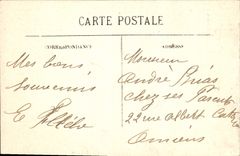 CARTE POSTALE
CORRESPONDANCE
ADRESSE
Mes bons
souvenirs
Monsieur
André
chez ses Parents
22 rue Albert
Amiens